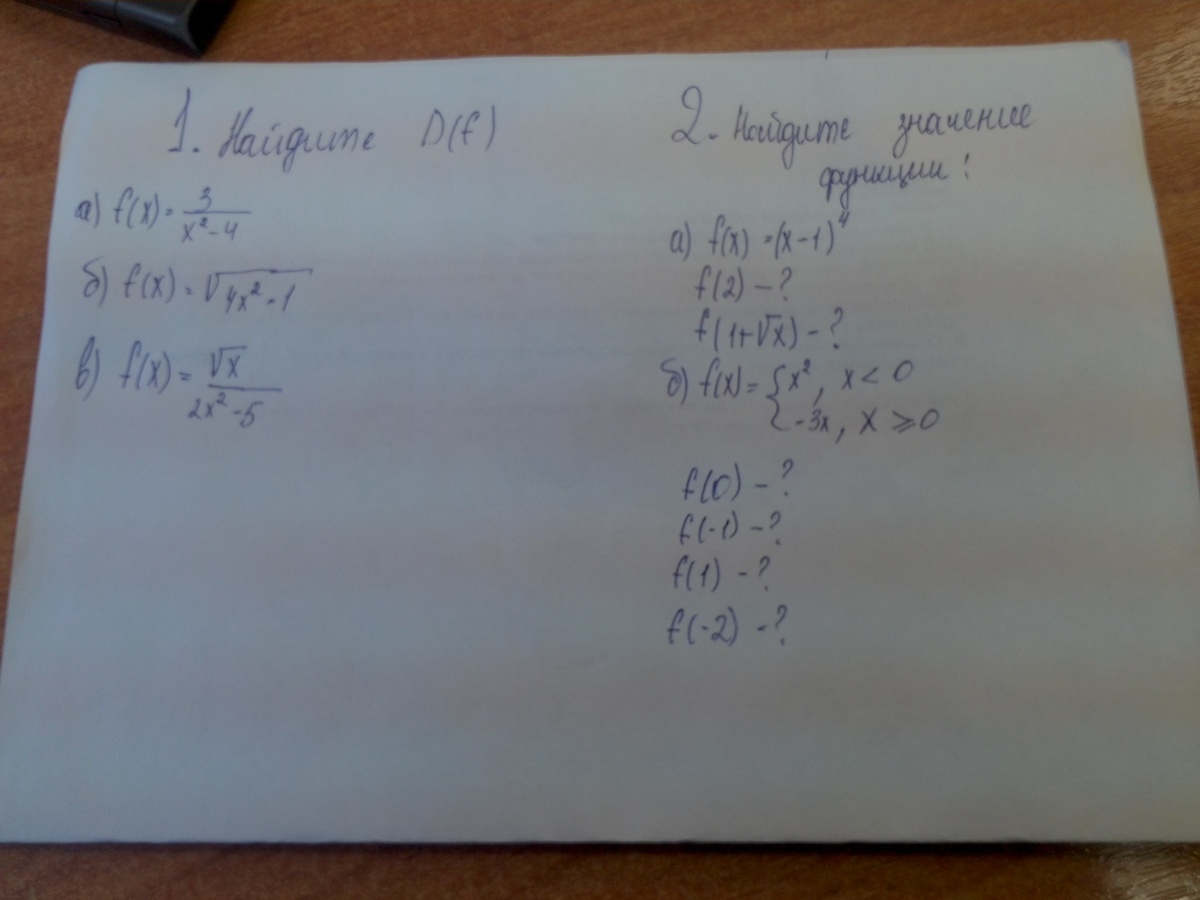 1. Найдите D(f)
а) f(x) = 3/(x² - 4)
б) f(x) = √(4x² - 1)
в) f(x) = √x/(2x² - 5)
2. Найдите значение
функции:
а) f(x) = (x - 1)⁴
f(2) - ?
f(1+√x) - ?
б) f(x) = { x², x < 0
-3x, x ⩾ 0
f(0) - ?
f(-1) - ?
f(1) - ?
f(-2) - ?